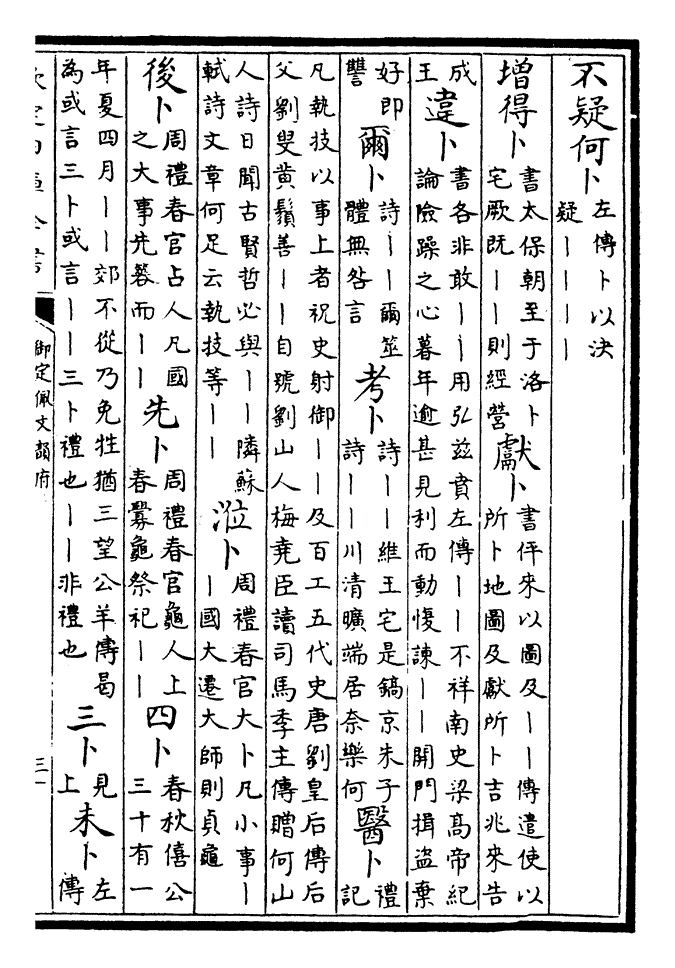 不疑何卜 左傳卜以決疑丨丨丨丨
增得卜 書太保朝至于洛卜宅厥既丨丨則經營 獻卜 書伻來以圖及丨丨傳遣使以所卜地圖及獻所卜吉兆來告
成王 違卜 書各非敢丨丨用弘兹賁左傳丨丨不祥南史梁高帝紀論險躁之心暮年逾甚見利而動愎諫丨丨開門揖盜棄
好即讐 爾卜 詩丨丨爾筮體無咎言 考卜 詩丨丨維王宅是鎬京朱子詩丨丨川清曠端居奈樂何 醫卜 禮記
凡執技以事上者祝史射御丨丨及百工五代史唐劉皇后傳后父劉叟黄鬚善丨丨自號劉山人梅堯臣讀司馬季主傳贈何山
人詩日聞古賢哲必與丨丨隣蘇軾詩文章何足云執技等丨丨 涖卜 周禮春官大卜凡小事丨丨國大遷大師則貞龜
後卜 周禮春官占人凡國之大事先簭而丨丨 先卜 周禮春官龜人上春釁龜祭祀丨丨 四卜 春秋僖公三十有一
年夏四月丨丨郊不從乃免牲猶三望公羊傳曷為或言三卜或言丨丨三卜禮也丨丨非禮也 三卜 見上 未卜 左傳
欽定四庫全書
御定佩文韻府